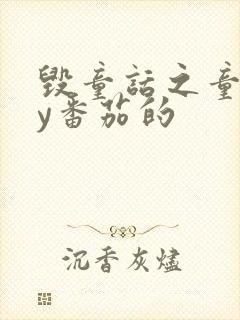 毁童话之童
y番茄的
沉香灰烬